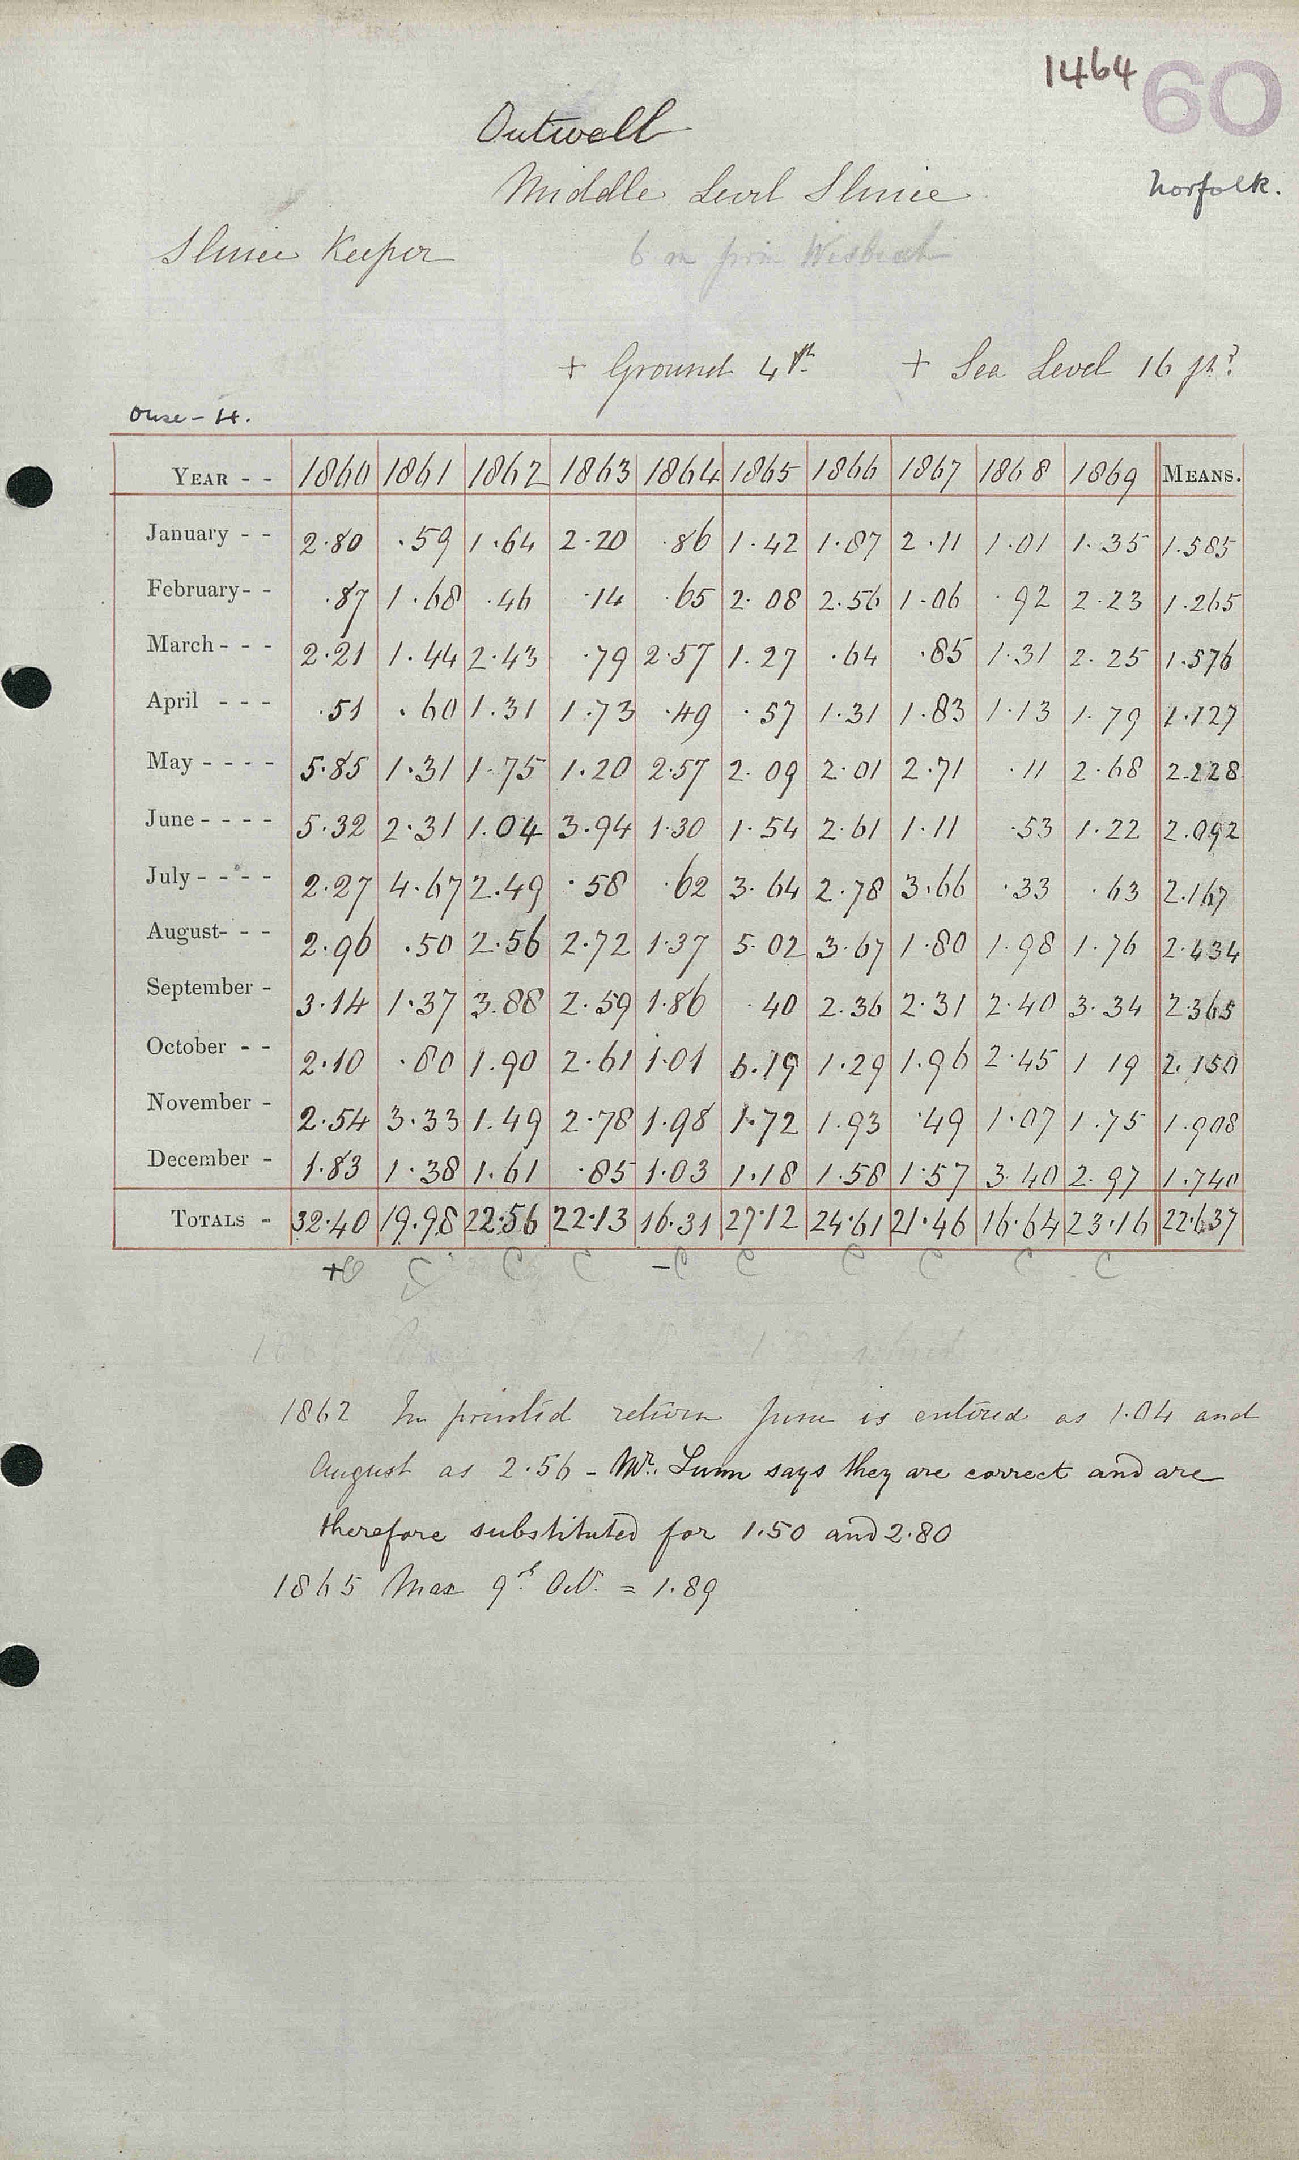 1464 60
Outwell
Middle Level Sluice
Norfolk.
Sluice Keeper 6 m from Wisbech
+ Ground 4 ft. + Sea Level 16 ft?
Ouse - 14.
YEAR - - 1860 1861 1862 1863 1864 1865 1866 1867 1868 1869 MEANS.
January - - 2.80 .59 1.64 2.20 .86 1.42 1.87 2.11 1.01 1.35 1.585
February - - .87 1.68 .46 .14 .65 2.08 2.56 1.06 .92 2.23 1.265
March - - - 2.21 1.44 2.43 .79 2.57 1.27 .64 .85 1.31 2.25 1.576
April - - - .51 .60 1.31 1.73 .49 .57 1.31 1.83 1.13 1.79 1.127
May - - - - 5.85 1.31 1.75 1.20 2.57 2.09 2.01 2.71 .11 2.68 2.228
June - - - - 5.32 2.31 1.04 3.94 1.30 1.54 2.61 1.11 .53 1.22 2.092
July - - - - 2.27 4.67 2.49 .58 .62 3.64 2.78 3.66 .33 .63 2.167
August - - - 2.96 .50 2.56 2.72 1.37 5.02 3.67 1.80 1.98 1.76 2.434
September - 3.14 1.37 3.88 2.59 1.86 .40 2.36 2.31 2.40 3.34 2.365
October - - 2.10 .80 1.90 2.61 1.01 6.19 1.29 1.96 2.45 1 19 2.150
November - 2.54 3.33 1.49 2.78 1.98 1.72 1.93 .49 1.07 1.75 1.908
December - 1.83 1.38 1.61 .85 1.03 1.18 1.58 1.57 3.40 2.97 1.740
TOTALS - 32.40 19.98 22.56 22.13 16.31 27.12 24.61 21.46 16.64 23.16 22.637
+C C C C -C C C C C C
1862 In printed return June is entered as 1.04 and
August as 2.56 - Mr. Lunn says they are correct and are
therefore substituted for 1.50 and 2.80
1865 Max 9th Oct. = 1.89